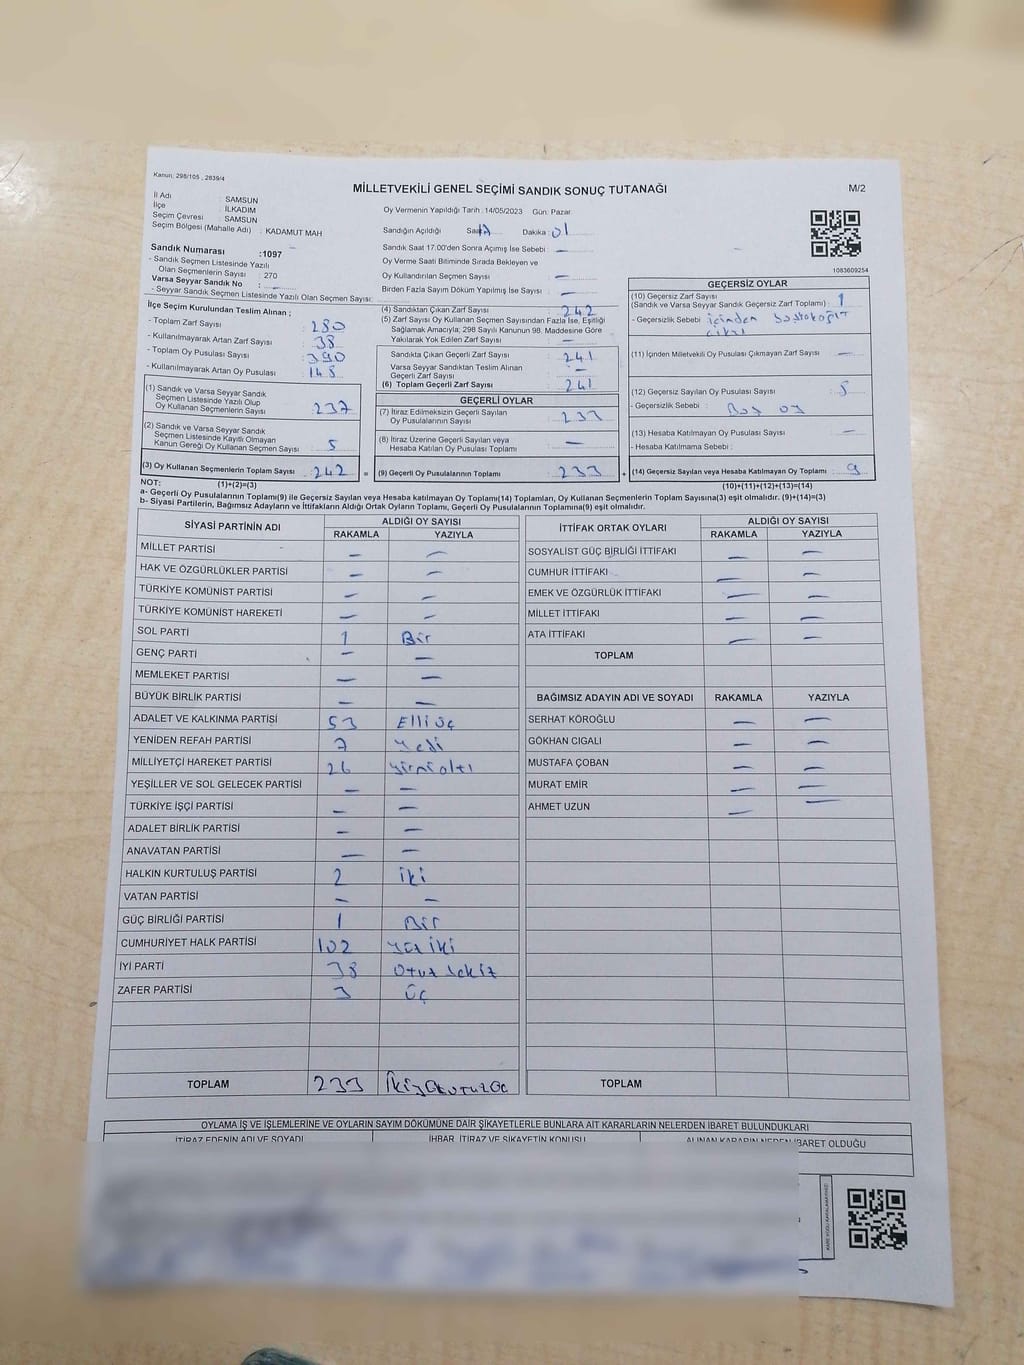 Kanun: 298/105 , 2839/4
MİLLETVEKİLİ GENEL SEÇİMİ SANDIK SONUÇ TUTANAĞI
M/2
İl Adı : SAMSUN
İlçe : İLKADIM
Seçim Çevresi : SAMSUN
Seçim Bölgesi (Mahalle Adı) : KADAMUT MAH
Oy Vermenin Yapıldığı Tarih : 14/05/2023 Gün: Pazar
Sandığın Açıldığı Saat 17 Dakika : 01
Sandık Saat 17.00'den Sonra Açımış İse Sebebi : —
Oy Verme Saati Bitiminde Sırada Bekleyen ve
Oy Kullandırılan Seçmen Sayısı : —
Birden Fazla Sayım Döküm Yapılmış İse Sayısı : —
1083609254
Sandık Numarası :1097
- Sandık Seçmen Listesinde Yazılı
Olan Seçmenlerin Sayısı : 270
Varsa Seyyar Sandık No :
- Seyyar Sandık Seçmen Listesinde Yazılı Olan Seçmen Sayısı:
İlçe Seçim Kurulundan Teslim Alınan ;
- Toplam Zarf Sayısı : 280
- Kullanılmayarak Artan Zarf Sayısı : 38
- Toplam Oy Pusulası Sayısı : 390
- Kullanılmayarak Artan Oy Pusulası : 148
(1) Sandık ve Varsa Seyyar Sandık
Seçmen Listesinde Yazılı Olup
Oy Kullanan Seçmenlerin Sayısı : 237
(2) Sandık ve Varsa Seyyar Sandık
Seçmen Listesinde Kayıtlı Olmayan
Kanun Gereği Oy Kullanan Seçmen Sayısı : 5
(3) Oy Kullanan Seçmenlerin Toplam Sayısı : 242 =
(4) Sandıktan Çıkan Zarf Sayısı : 242
(5) Zarf Sayısı Oy Kullanan Seçmen Sayısından Fazla İse, Eşitliği
Sağlamak Amacıyla; 298 Sayılı Kanunun 98. Maddesine Göre
Yakılarak Yok Edilen Zarf Sayısı : —
Sandıkta Çıkan Geçerli Zarf Sayısı : 241
Varsa Seyyar Sandıktan Teslim Alınan
Geçerli Zarf Sayısı : —
(6) Toplam Geçerli Zarf Sayısı : 241
GEÇERLİ OYLAR
(7) İtiraz Edilmeksizin Geçerli Sayılan
Oy Pusulalarının Sayısı : 233
(8) İtiraz Üzerine Geçerli Sayılan veya
Hesaba Katılan Oy Pusulaları Toplamı : —
(9) Geçerli Oy Pusulalarının Toplamı : 233 +
GEÇERSİZ OYLAR
(10) Geçersiz Zarf Sayısı
(Sandık ve Varsa Seyyar Sandık Geçersiz Zarf Toplamı) : 1
- Geçersizlik Sebebi : içinden
çıktı
(11) İçinden Milletvekili Oy Pusulası Çıkmayan Zarf Sayısı : —
(12) Geçersiz Sayılan Oy Pusulası Sayısı : 8
- Geçersizlik Sebebi : Boş oy
(13) Hesaba Katılmayan Oy Pusulası Sayısı : —
- Hesaba Katılmama Sebebi :
(14) Geçersiz Sayılan veya Hesaba Katılmayan Oy Toplamı : 9
NOT: (1)+(2)=(3) (10)+(11)+(12)+(13)=(14)
a- Geçerli Oy Pusulalarının Toplamı(9) ile Geçersiz Sayılan veya Hesaba katılmayan Oy Toplamı(14) Toplamları, Oy Kullanan Seçmenlerin Toplam Sayısına(3) eşit olmalıdır. (9)+(14)=(3)
b- Siyasi Partilerin, Bağımsız Adayların ve İttifakların Aldığı Ortak Oyların Toplamı, Geçerli Oy Pusulalarının Toplamına(9) eşit olmalıdır.
SİYASİ PARTİNİN ADI ALDIĞI OY SAYISI
RAKAMLA YAZIYLA
MİLLET PARTİSİ — —
HAK VE ÖZGÜRLÜKLER PARTİSİ — —
TÜRKİYE KOMÜNİST PARTİSİ — —
TÜRKİYE KOMÜNİST HAREKETİ — —
SOL PARTİ 1 Bir
GENÇ PARTİ — —
MEMLEKET PARTİSİ — —
BÜYÜK BİRLİK PARTİSİ — —
ADALET VE KALKINMA PARTİSİ 53 Elli üç
YENİDEN REFAH PARTİSİ 7 Yedi
MİLLİYETÇİ HAREKET PARTİSİ 26 yirmi altı
YEŞİLLER VE SOL GELECEK PARTİSİ — —
TÜRKİYE İŞÇİ PARTİSİ — —
ADALET BİRLİK PARTİSİ — —
ANAVATAN PARTİSİ — —
HALKIN KURTULUŞ PARTİSİ 2 iki
VATAN PARTİSİ — —
GÜÇ BİRLİĞİ PARTİSİ 1 Bir
CUMHURİYET HALK PARTİSİ 102 yüz iki
İYİ PARTİ 38 Otuz sekiz
ZAFER PARTİSİ 3 üç
TOPLAM 233 İkiyüzotuzüç
İTTİFAK ORTAK OYLARI ALDIĞI OY SAYISI
RAKAMLA YAZIYLA
SOSYALİST GÜÇ BİRLİĞİ İTTİFAKI — —
CUMHUR İTTİFAKI — —
EMEK VE ÖZGÜRLÜK İTTİFAKI — —
MİLLET İTTİFAKI — —
ATA İTTİFAKI — —
TOPLAM
BAĞIMSIZ ADAYIN ADI VE SOYADI RAKAMLA YAZIYLA
SERHAT KÖROĞLU — —
GÖKHAN CIGALI — —
MUSTAFA ÇOBAN — —
MURAT EMİR — —
AHMET UZUN — —
TOPLAM
OYLAMA İŞ VE İŞLEMLERİNE VE OYLARIN SAYIM DÖKÜMÜNE DAİR ŞİKAYETLERLE BUNLARA AİT KARARLARIN NELERDEN İBARET BULUNDUKLARI
İTİRAZ EDENİN ADI VE SOYADI İHBAR, İTİRAZ VE ŞİKAYETİN KONUSU ALINAN KARARIN NEDEN İBARET OLDUĞU